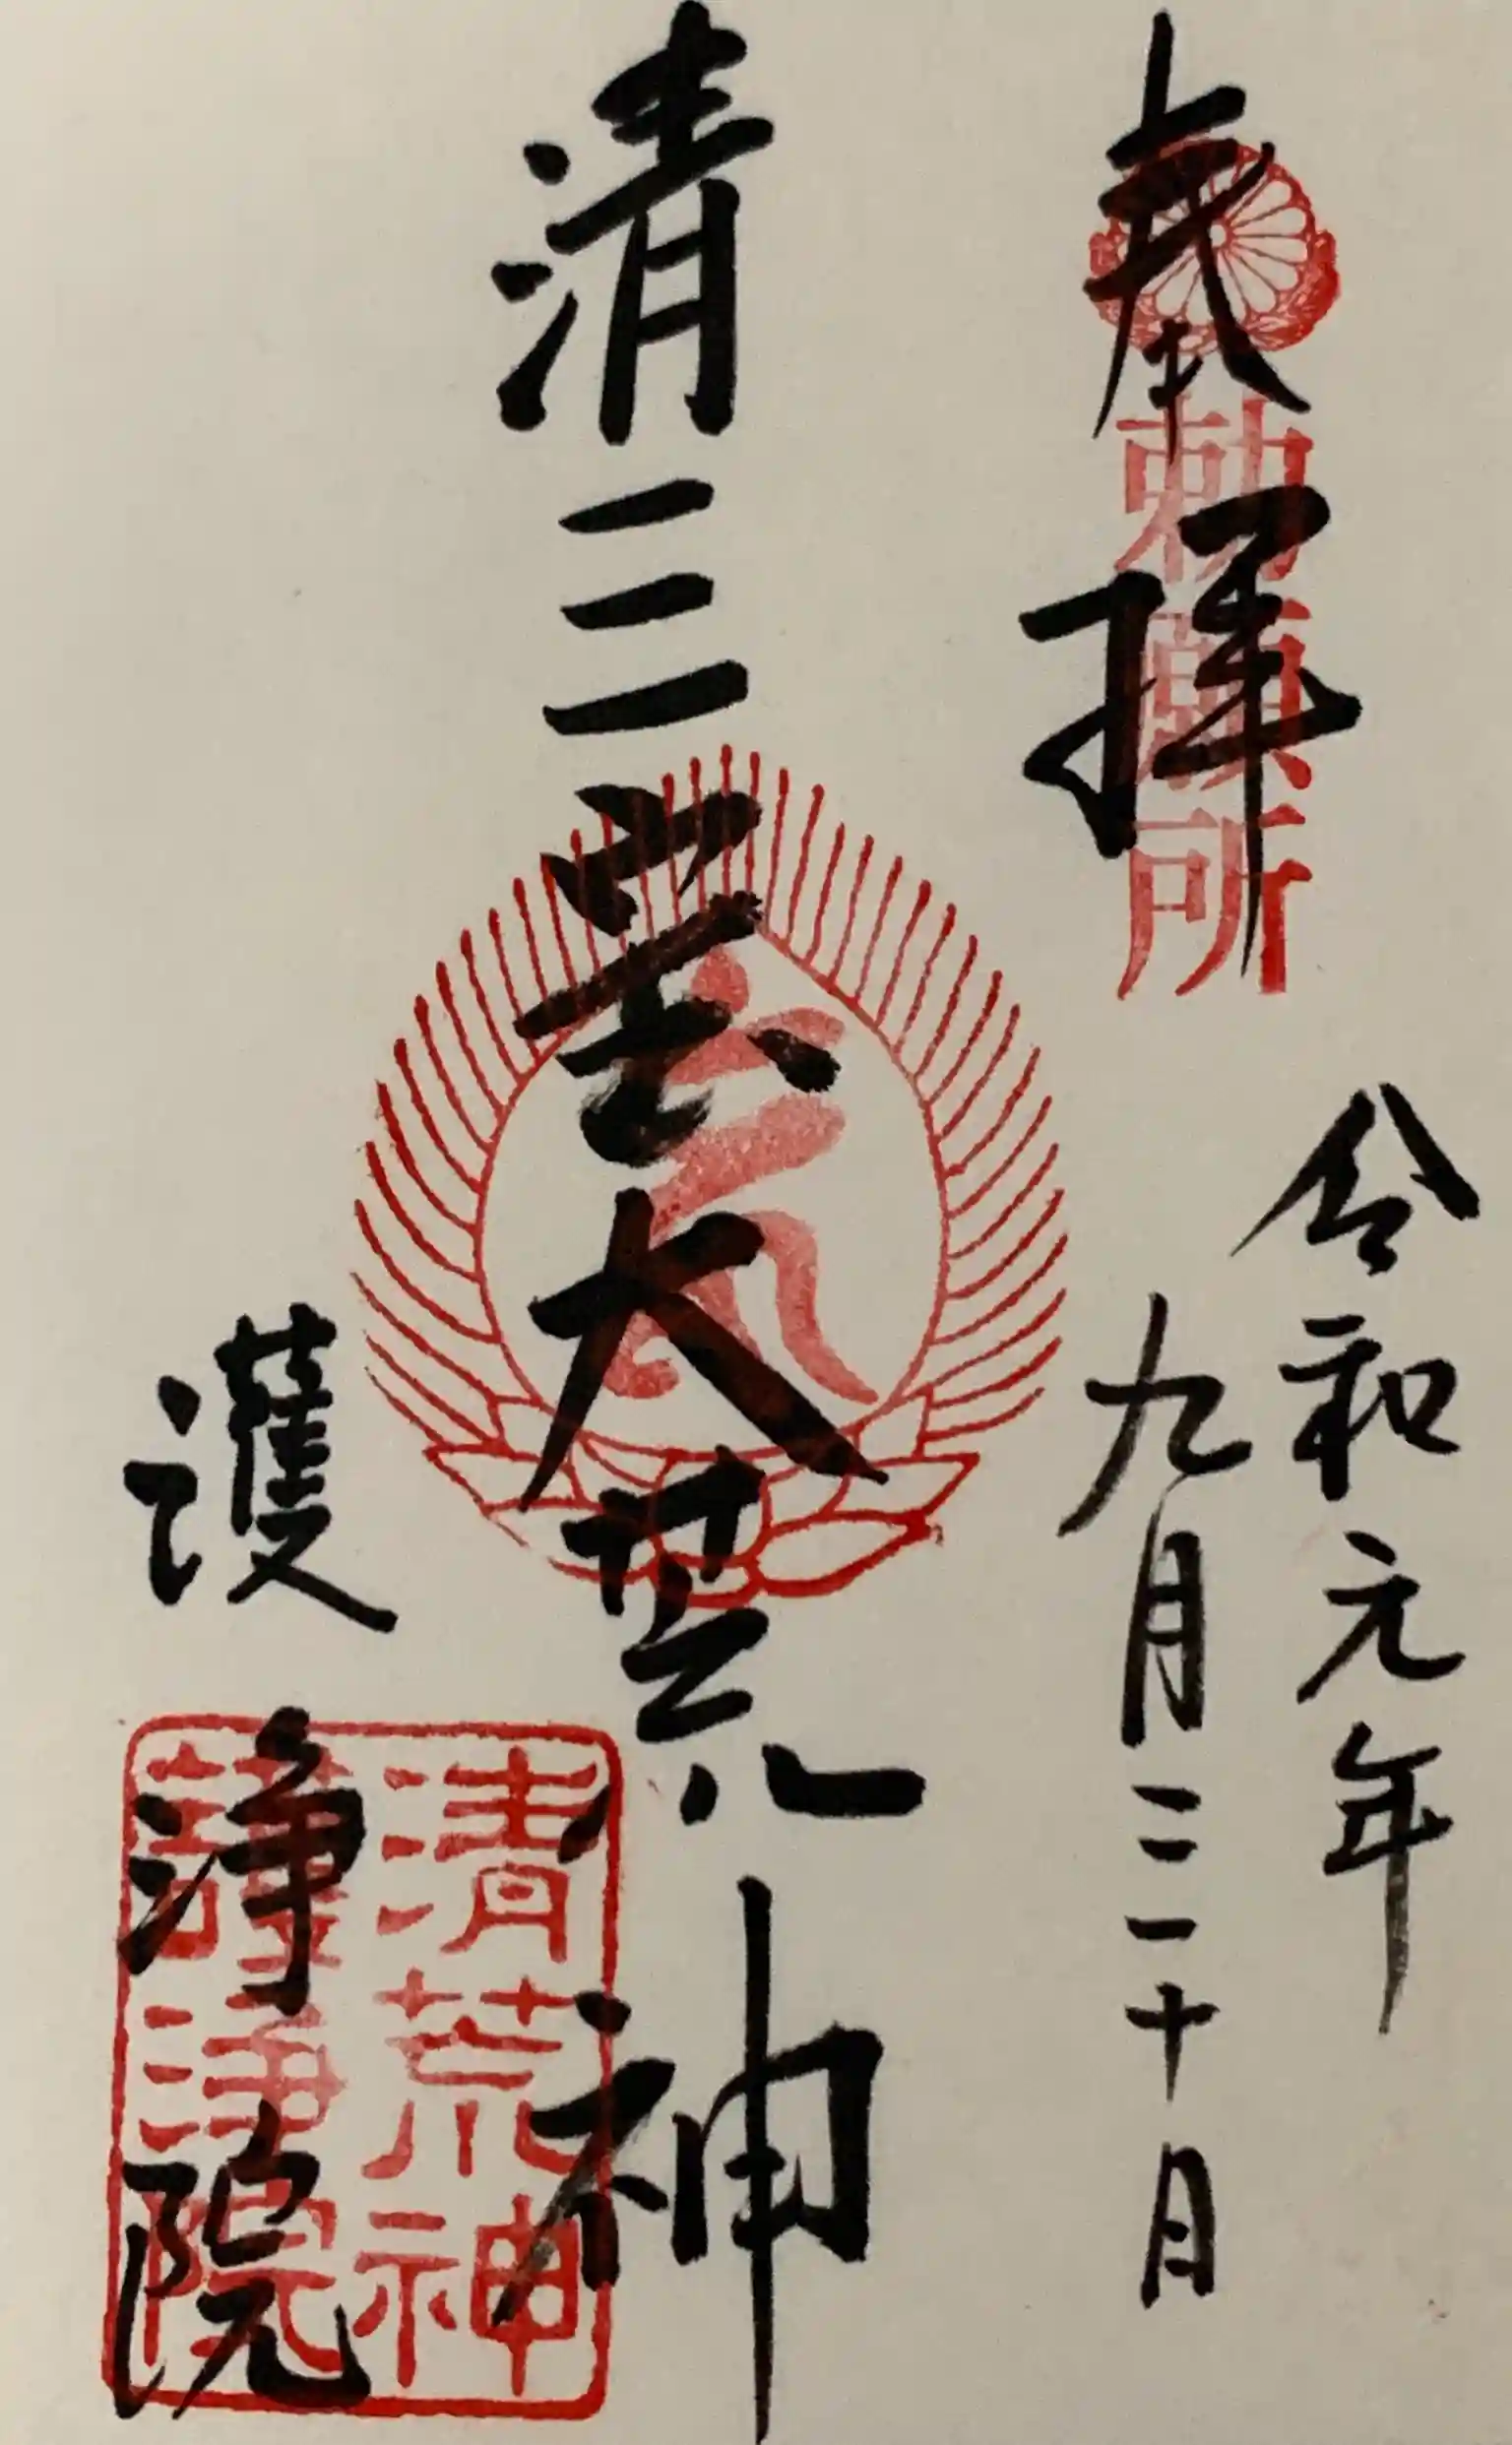 奉拝
勅願所
令和元年
九月三十日
清三宝大荒神
護浄院
清荒神
護浄院